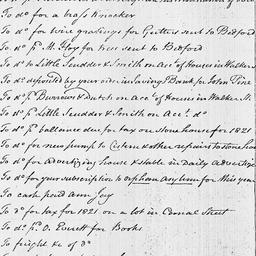 To do for a brass Knocker
To do for wire gratings for Gutters sent to Bedford
To do pd. M. Floy for trees sent to Bedford
To do to Little Scudder & Smith on Acct. of Houses in Walker St.
To do deposited by your side in Savings Bank for John Tine
To do pd. Burrows & Dutch on Acct. of Houses in Walker St.
To do pd. Little Scudder & Smith on Acct. do
To do pd. ballance due for tax on Stone house for 1821
To do for new pump to Cistern & other repairs to Stone house
To do for advertizing house & stable in Daily Advertiser
To do for your subscription to orphan asylum for this year
To cash paid Ann Jay
To do for tax for 1821 on a lot in Canal Street
To do pd. O. Everett for Books
To freight &c of do